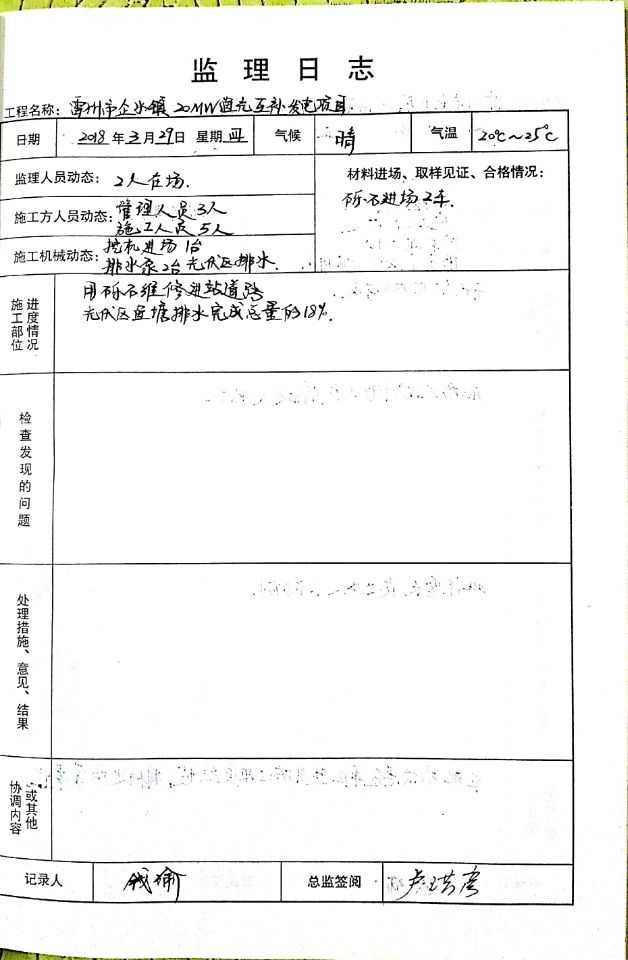 监理日志
工程名称: 雷州市企水镇20MW渔光互补发电项目.
日期 2018年3月29日 星期四 气候 晴 气温 20℃~25℃
监理人员动态: 2人在场.
材料进场、取样见证、合格情况:
砾石进场2车.
施工方人员动态: 管理人员3人
施工人员5人
施工机械动态: 挖机进场1台
排水泵2台光伏区排水.
施工部位
进度情况
用砾石维修进站道路
光伏区鱼塘排水完成总量的18%.
检查发现的问题
处理措施、意见、结果
协调内容
或其他
记录人 总监签阅